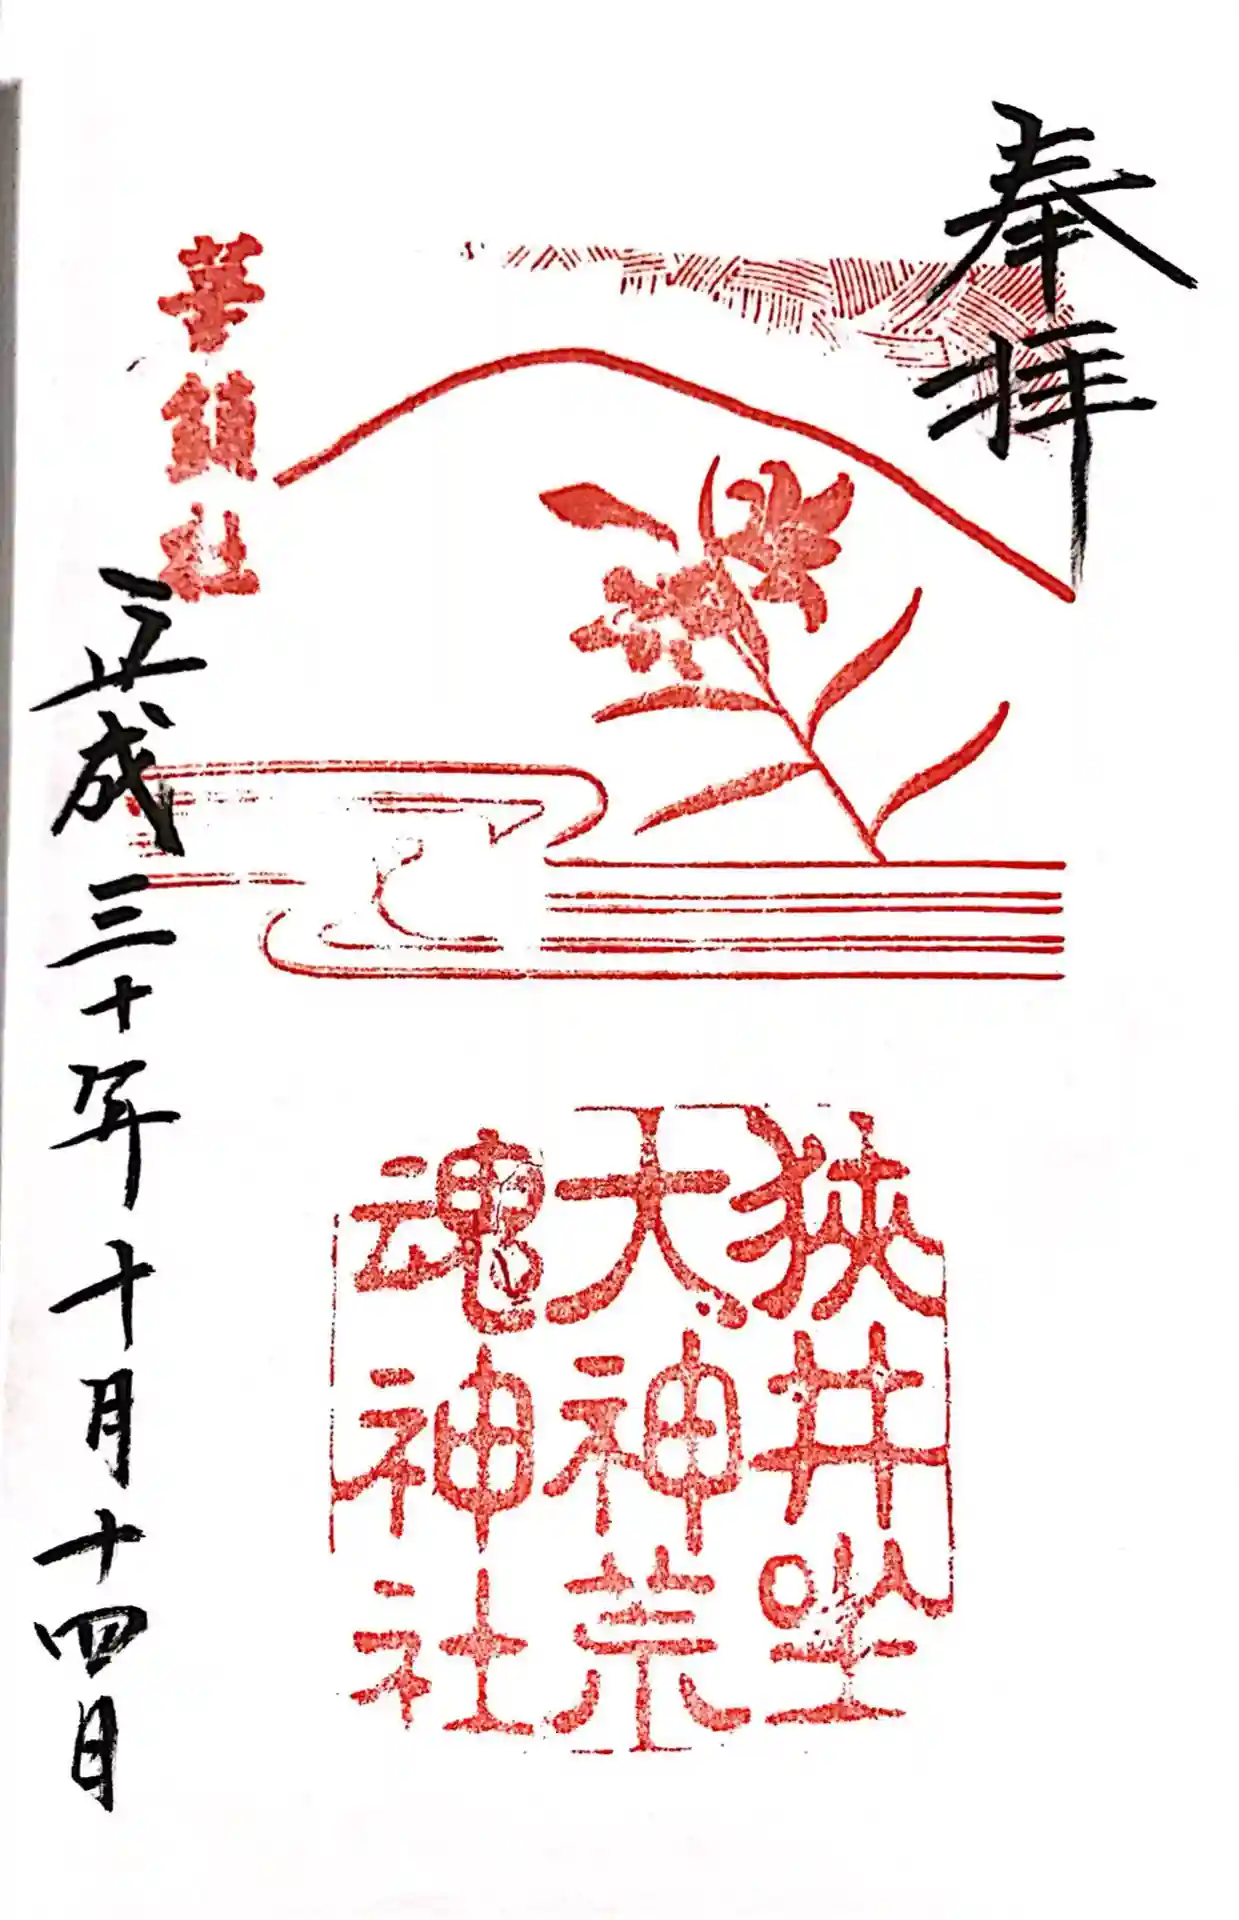 奉拝
華鎮社
狭井坐
大神荒
魂神社
平成三十年十月十四日